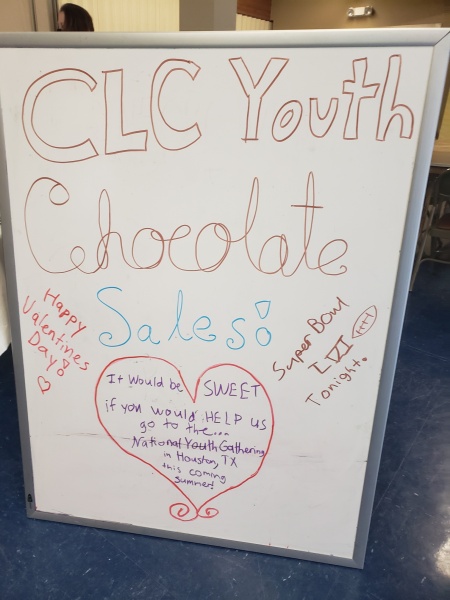 CLC Youth
Chocolate
Sales!
Happy
Valentines
Day!
Super Bowl
LVI
Tonight!
It would be SWEET
if you would HELP us
go to the...
National Youth Gathering
in Houston, TX
this coming
summer!